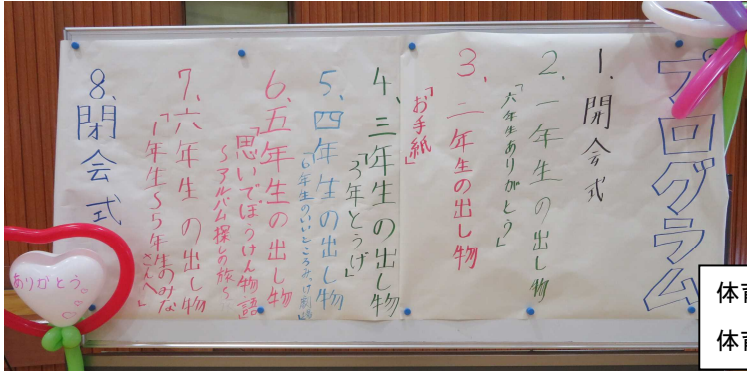 プログラム
1、開会式
2、一年生の出し物
「六年生ありがとう」
3、二年生の出し物
「お手紙」
4、三年生の出し物
「3年とうげ」
5、四年生の出し物
「6年生のいいところみつけ劇場」
6、五年生の出し物
「思いでぼうけん物語
〜アルバム探しの旅〜」
7、六年生の出し物
「1年生〜5年生のみな
さんへ」
8、閉会式
ありがとう
体育
体育